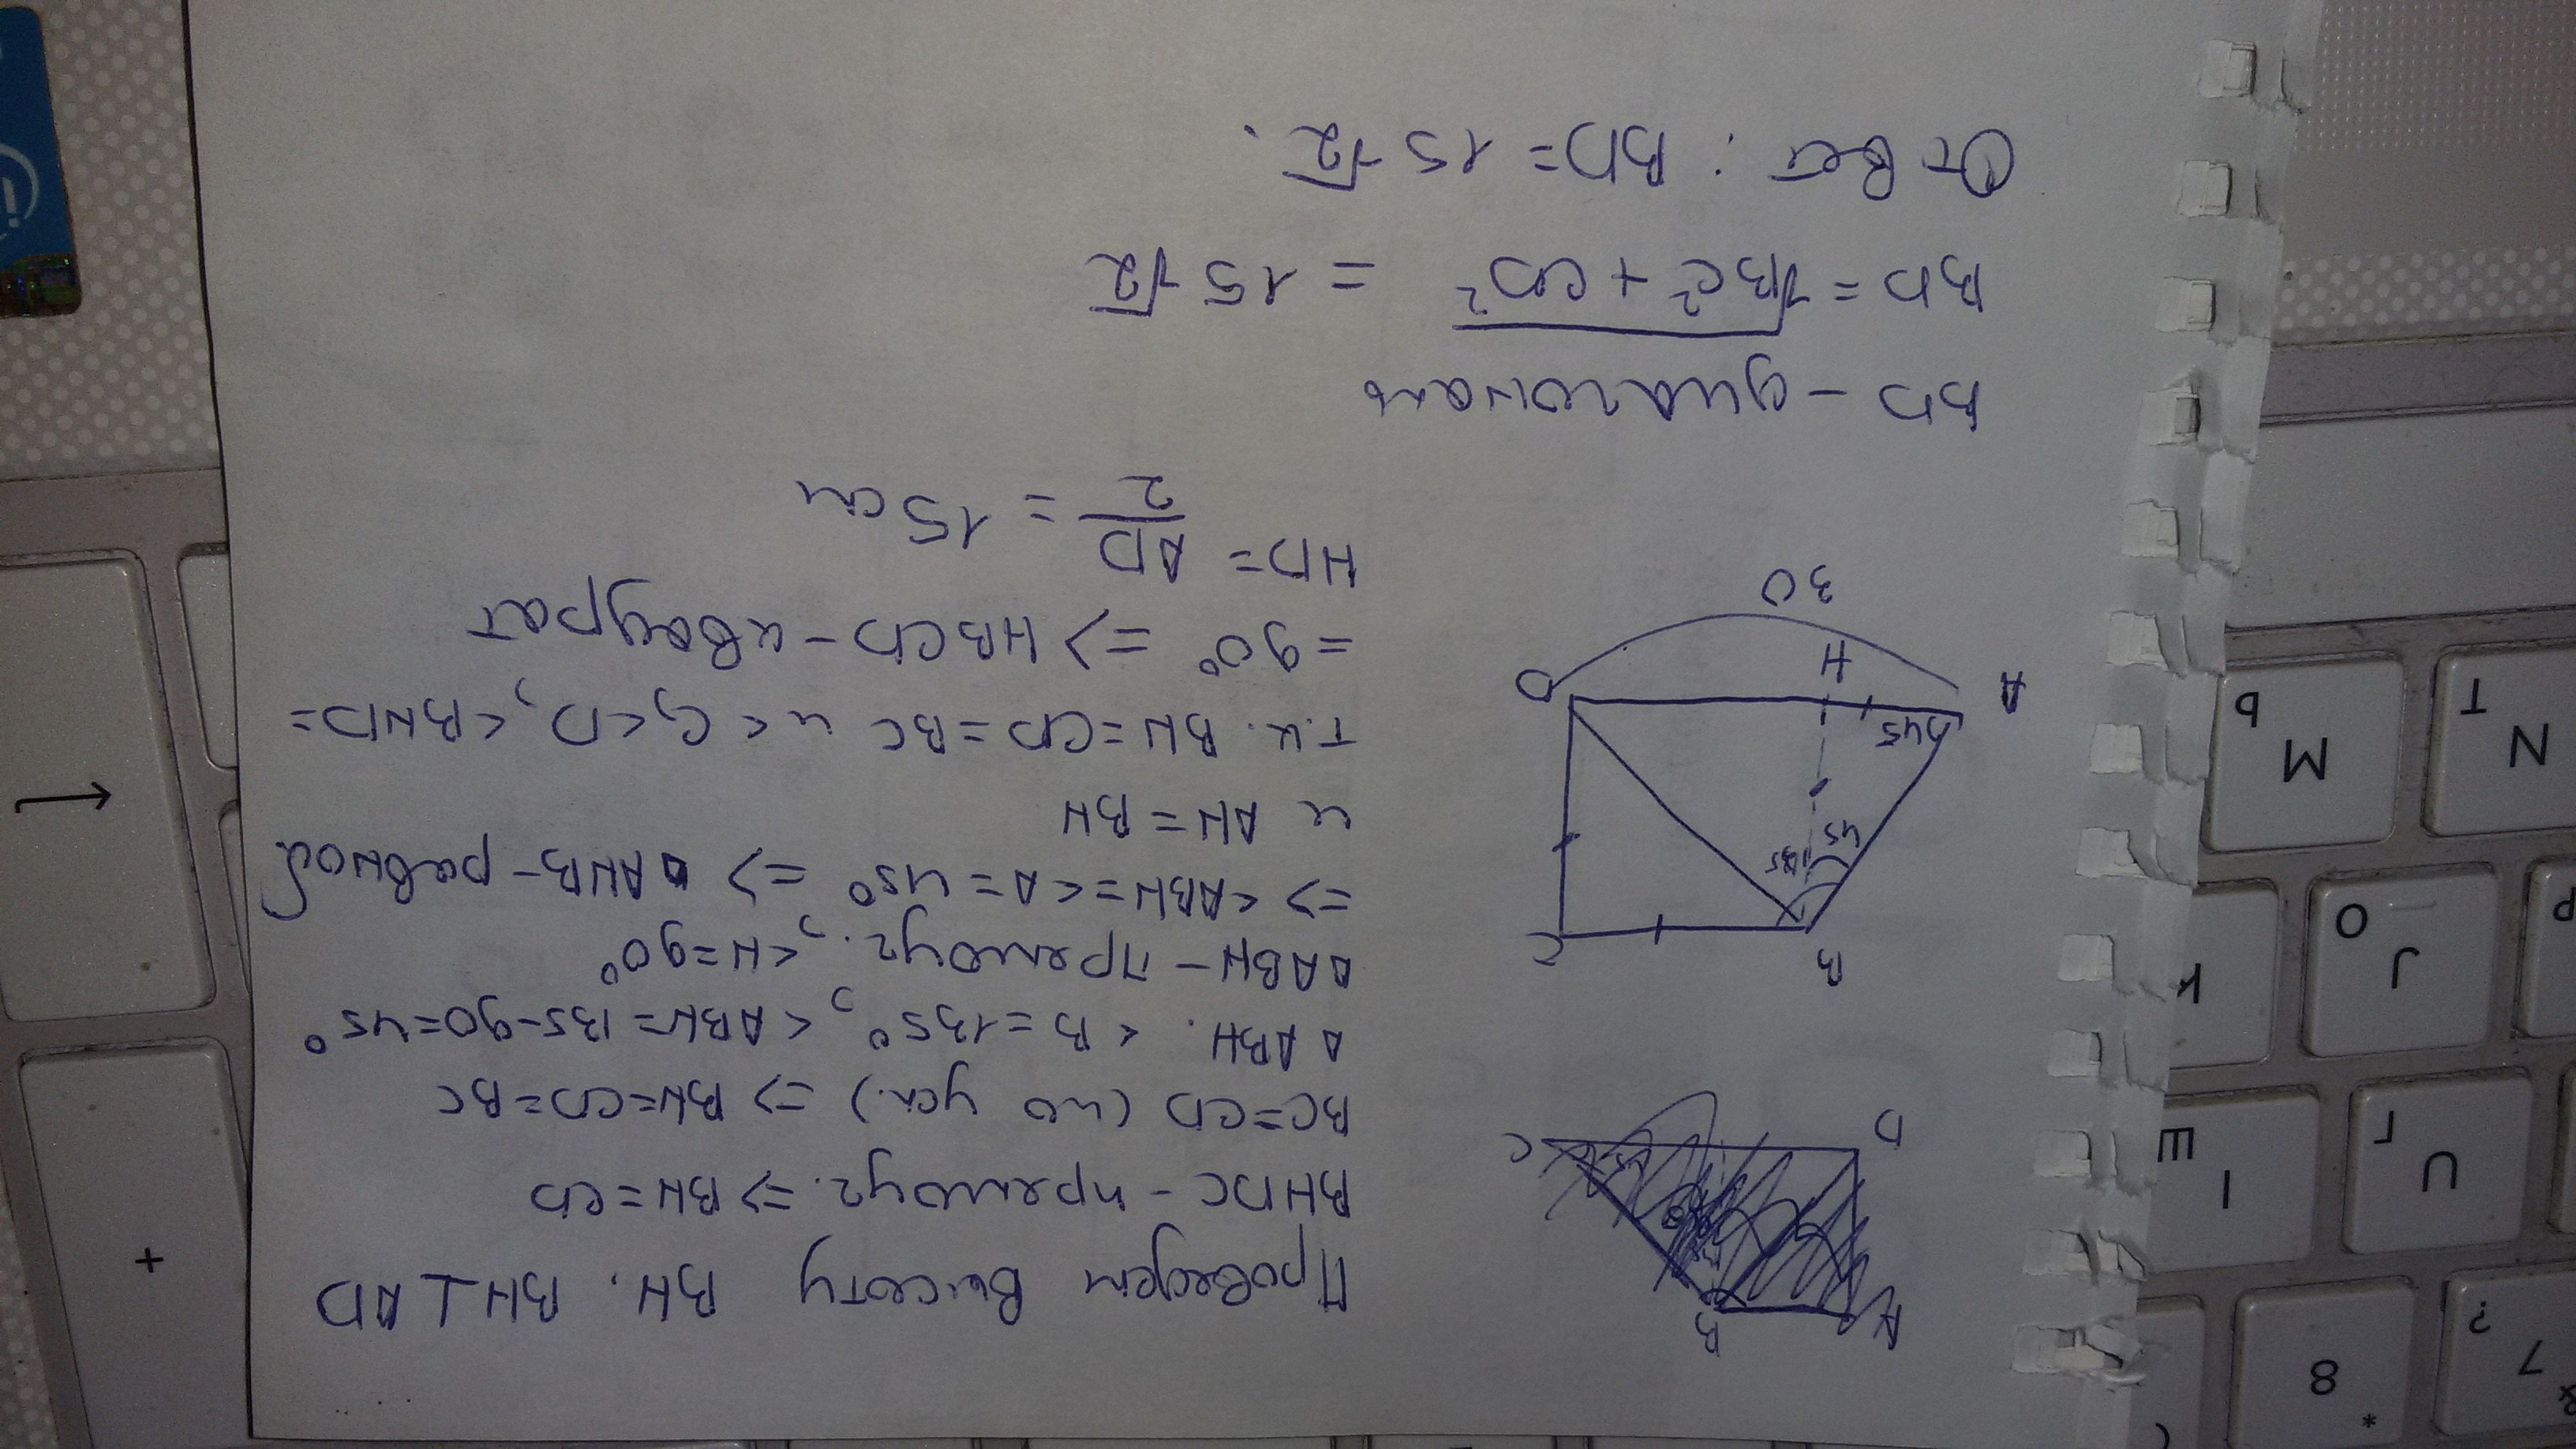 Проведем высоту BH. BH⊥AD
BHDC - прямоуг. => BH=CD
BC=CD (по усл.) => BH=CD=BC
△ABH. <B=135°, <ABH=135-90=45°
△ABH - прямоуг., <H=90°
=> <ABH=<A=45° => △AHB - равноб
и AH=BH
т.к. BH=CD=BC и <C, <D, <BHD=
=90° => HBCD - квадрат
HD= AD/2 = 15 см
A
B
D
C
B
C
135
45
45
A
H
D
30
BD - диагональ
BD = √BC²+CD² = 15√2
Ответ: BD=15√2.
+
7
&
?
8
*
(
U
Г
I
Ш
J
О
K
N
Т
M
Ь